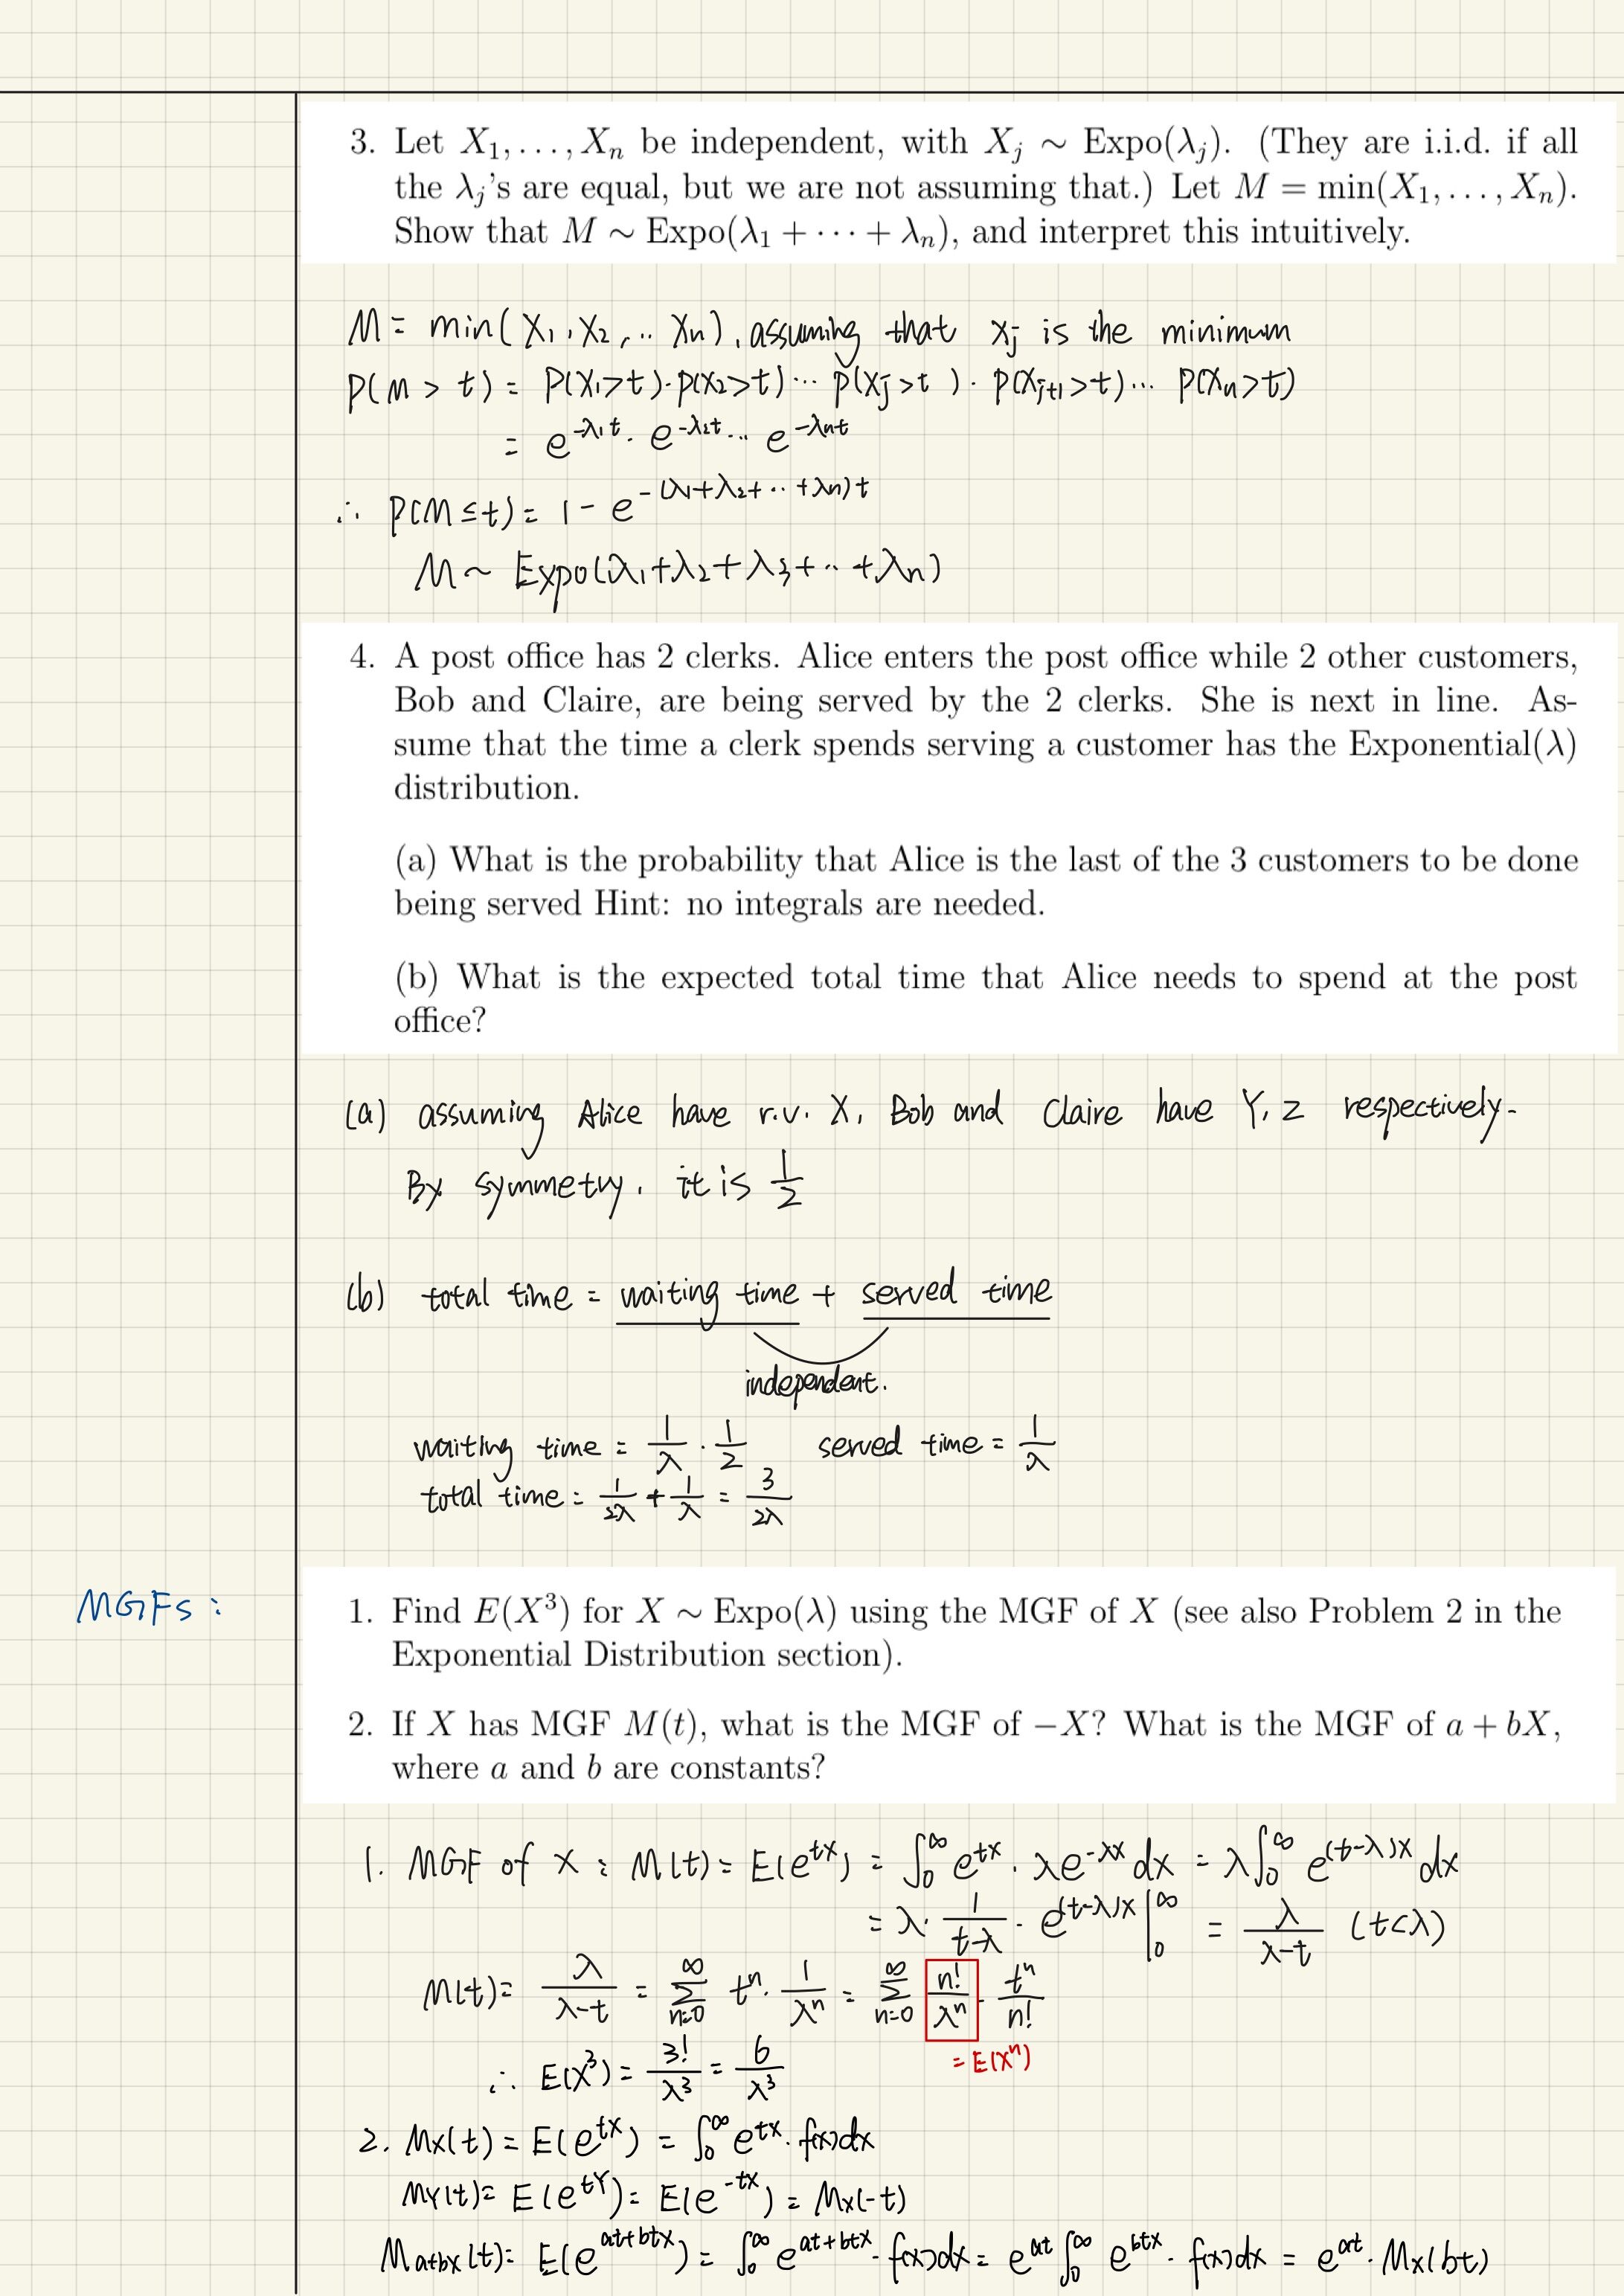 3. Let X₁, . . . , Xₙ be independent, with Xⱼ ∼ Expo(λⱼ). (They are i.i.d. if all
the λⱼ's are equal, but we are not assuming that.) Let M = min(X₁, . . . , Xₙ).
Show that M ∼ Expo(λ₁ + · · · + λₙ), and interpret this intuitively.
M = min(X₁, X₂, ... Xₙ), assuming that xⱼ is the minimum
P(M > t) = P(X₁>t)·P(X₂>t)··· P(Xⱼ>t)·P(Xⱼ₊₁>t)··· P(Xₙ>t)
= e^{-λ₁t}· e^{-λ₂t}... e^{-λₙt}
∴ P(M≤t) = 1 - e^{-(λ₁+λ₂+..+λₙ)t}
M ~ Expo(λ₁+λ₂+λ₃+..+λₙ)
4. A post office has 2 clerks. Alice enters the post office while 2 other customers,
Bob and Claire, are being served by the 2 clerks. She is next in line. As-
sume that the time a clerk spends serving a customer has the Exponential(λ)
distribution.
(a) What is the probability that Alice is the last of the 3 customers to be done
being served Hint: no integrals are needed.
(b) What is the expected total time that Alice needs to spend at the post
office?
(a) assuming Alice have r.v. X, Bob and Claire have Y, Z respectively.
By symmetry, it is 1/2
(b) total time = waiting time + served time
independent.
waiting time = 1/λ · 1/2 served time = 1/λ
total time = 1/2λ + 1/λ = 3/2λ
MGFs :
1. Find E(X³) for X ∼ Expo(λ) using the MGF of X (see also Problem 2 in the
Exponential Distribution section).
2. If X has MGF M(t), what is the MGF of −X? What is the MGF of a + bX,
where a and b are constants?
1. MGF of X : M(t) = E(e^{tX}) = ∫₀^∞ e^{tx} · λe^{-λx} dx = λ∫₀^∞ e^{(t-λ)x} dx
= λ· 1/(t-λ) · e^{(t-λ)x} |₀^∞ = λ/(λ-t) (t<λ)
M(t) = λ/(λ-t) = ∑_{n=0}^∞ tⁿ · 1/λⁿ = ∑_{n=0}^∞ n!/λⁿ · tⁿ/n!
= E(Xⁿ)
∴ E(X³) = 3!/λ³ = 6/λ³
2. Mx(t) = E(e^{tX}) = ∫₀^∞ e^{tx} · f(x)dx
My(t) = E(e^{tY}) = E(e^{-tX}) = Mx(-t)
M_{a+bx}(t) = E(e^{at+btX}) = ∫₀^∞ e^{at+btx} · f(x)dx = e^{at} ∫₀^∞ e^{btx} · f(x)dx = e^{at} · Mx(bt)